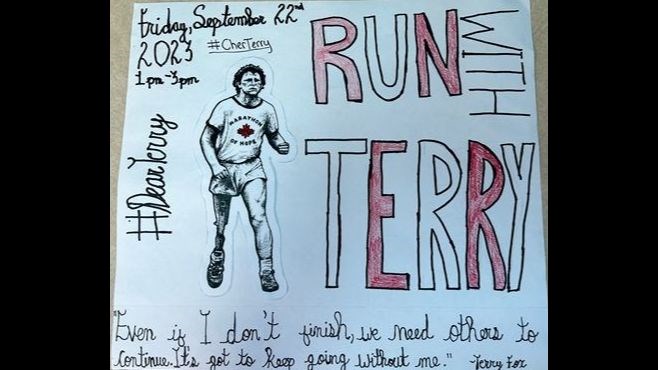 Friday, September 22nd
2023
1pm-3pm
#CherTerry
#DearTerry
RUN
WITH
TERRY
MARATHON
OF HOPE
"Even if I don't finish, we need others to
continue. It's got to keep going without me." - Terry Fox